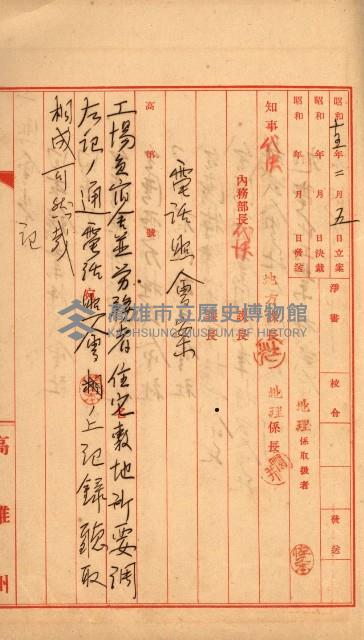 昭和十五年二月五日立案
昭和 年 月 日決裁
昭和 年 月 日發送
淨書
校合
發送
地理係取扱者
知事代決
內務部長代決
地方課長
地理係長
課長
係長
高 第 號
電話照會案
工場負宿舍並労務者住宅敷地所要調
左記ノ通電話照會相成ノ上記錄聽取
相成可然哉
記
高雄州
高雄市立歷史博物館
KAOHSIUNG MUSEUM OF HISTORY